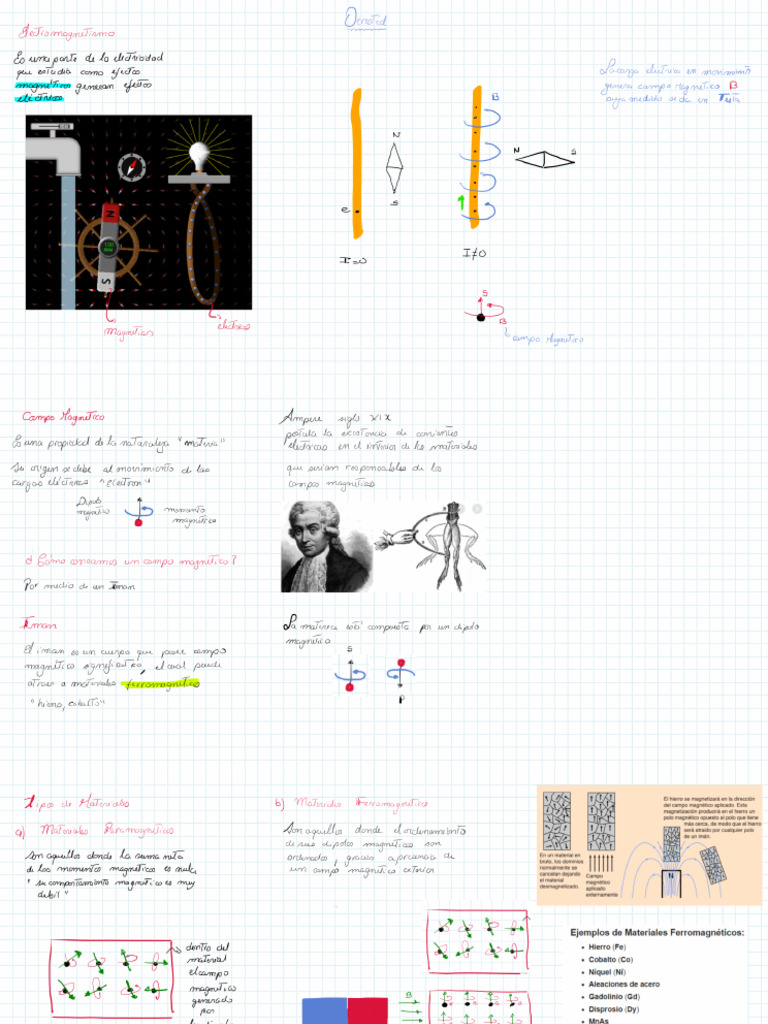 Electromagnetismo
Es una parte de la electricidad
que estudia como efectos
magnéticos generan efectos
eléctricos
N
S
Magnéticos
eléctricos
Oersted
La carga electrica en movimiento
genera campo magnetico B
cuya medida se da en Tesla
N
S
e
I=0
B
I≠0
N
S
S
B
campo Magnetico
Campo Magnetico
Es una propiedad de la naturaleza "materia"
Su origen se debe al movimiento de las
cargas eléctricas "Electron"
Dipolo
magnetico
momento
magnetico
¿Cómo creamos un campo magnetico?
Por medio de un Iman
Iman
El iman es un cuerpo que posee campo
magnetico significativo, el cual puede
atraer a materiales ferromagnetico
"hierro, cobalto"
Ampere siglo XIX
postula la existencia de corrientes
electricas en el interior de los materiales
que serian responsables de los
campos magneticos
La materia está compuesta por un dipolo
magnetico
S
P
Tipos de Materiales
a) Materiales Paramagneticos
Son aquellos donde la suma neta
de los momento magnetico es nula,
"su comportamiento magnetico es muy
debil"
dentro del
material
el campo
magnetico
generado
por
b) Materiales Ferromagnetico
Son aquellos donde el ordenamiento
de sus dipolos magneticos son
ordenados, gracias a presencia de
un campo magnetico exterior
B
En un material en
bruto, los dominios
normalmente se
cancelan dejando
el material
desmagnetizado.
Campo
magnético
aplicado
externamente
El hierro se magnetizará en la dirección
del campo magnético aplicado. Esta
magnetización producirá en el hierro un
polo magnético opuesto al polo que tiene
más cerca, de modo que al hierro
será atraido por cualquier polo
de un imán.
N
Ejemplos de Materiales Ferromagnéticos:
• Hierro (Fe)
• Cobalto (Co)
• Níquel (Ni)
• Aleaciones de acero
• Gadolinio (Gd)
• Disprosio (Dy)
• MnAs